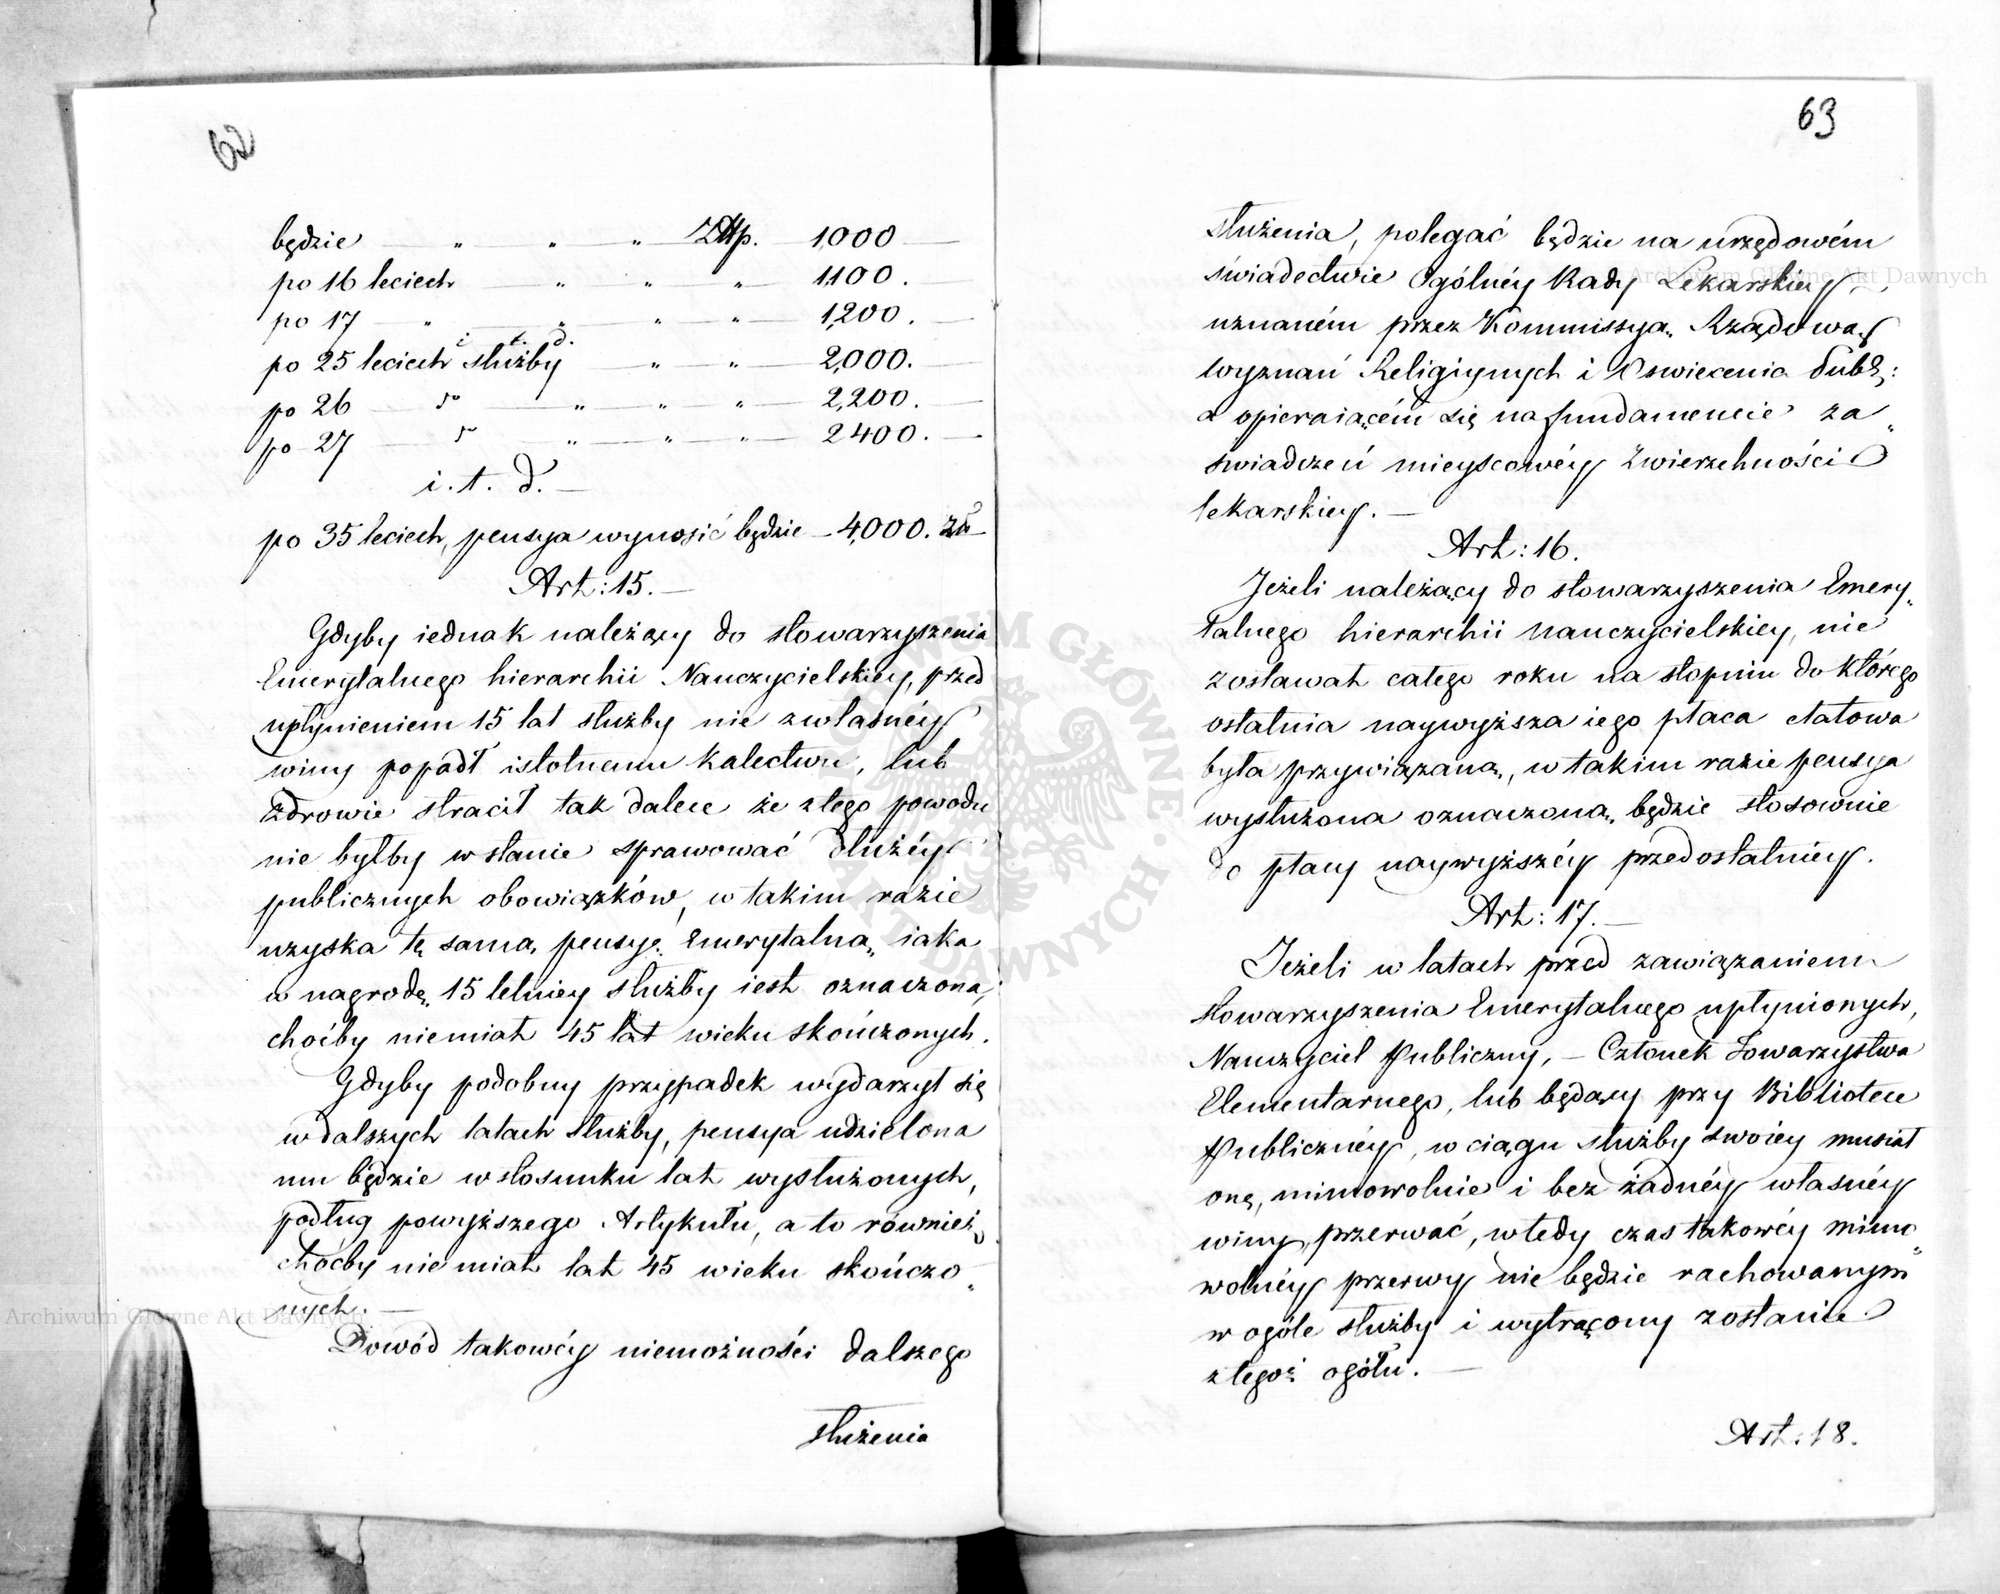 62
będzie — " — " — " — Złtp. — 1,000 —
po 16 leciech — " — " — " — 1,100. —
po 17 — " — " — " — " — 1,200. —
i. t. d.
po 25 leciech służby — " — " — 2,000. —
po 26 — do — " — " — " — 2,200. —
po 27 — do — " — " — " — 2400. —
i. t. d. —
po 35 leciech, pensya wynosić będzie — 4,000. Zł —
Art: 15. —
Gdyby iednak należący do stowarzyszenia
Emerytalnego hierarchii Nauczycielskiey, przed
upłynieniem 15 lat służby nie z własnéy
winy popadł istotnemu kalectwu, lub
zdrowie stracił tak dalece że z tego powodu
nie byłby w stanie sprawować dłużéy
publicznych obowiązków, w takim razie
uzyska tę samą pensyę Emerytalną, iaka
w nagrodę 15 letniey służby iest oznaczona,
choćby niemiał 45 lat wieku skończonych.
Gdyby podobny przypadek wydarzył się
w dalszych latach służby, pensya udzielona
mu będzie w stosunku lat wysłużonych,
podług powyższego Artykułu, a to również
choćby nie miał lat 45 wieku skończo„
nych. —
Dowód takowéy niemożności dalszego
służenia
63
służenia, polegać będzie na urzędowém
świadectwie Ogólnéy Rady Lekarskiey,
uznaném przez Kommissyą Rządową
Wyznań Religiynych i Oswiecenia Publ:
a opieraiącém się na fundamencie za„
świadczeń mieyscowéy Zwierzchności
lekarskiey. —
Art: 16.
Jeżeli należący do stowarzyszenia Emery„
talnego hierarchii Nauczycielskiey, nie
zostawał całego roku na stopniu do którego
ostatnia naywyższa iego płaca etatowa
była przywiązaną, w takim razie pensya
wysłużona oznaczoną będzie stosownie
do płacy naywyższéy przedostatniey.
Art: 17. —
Jeżeli w latach przed zawiązaniem
stowarzyszenia Emerytalnego upłynionych,
Nauczyciel Publiczny, — Członek Towarzystwa
Elementarnego, lub będący przy Bibliotece
Publicznéy, w ciągu służby swoiey musiał
onę, mimowolnie i bez żadnéy własnéy
winy, przerwać, wtedy czas takowéy mimo„
wolnéy przerwy nie będzie rachowanym
w ogóle służby i wytrącony zostanie
z tegoż ogółu. —
Art: 18.
Archiwum Główne Akt Dawnych
Archiwum Główne Akt Dawnych
ARCHIWUM GŁÓWNE · AKT DAWNYCH ·